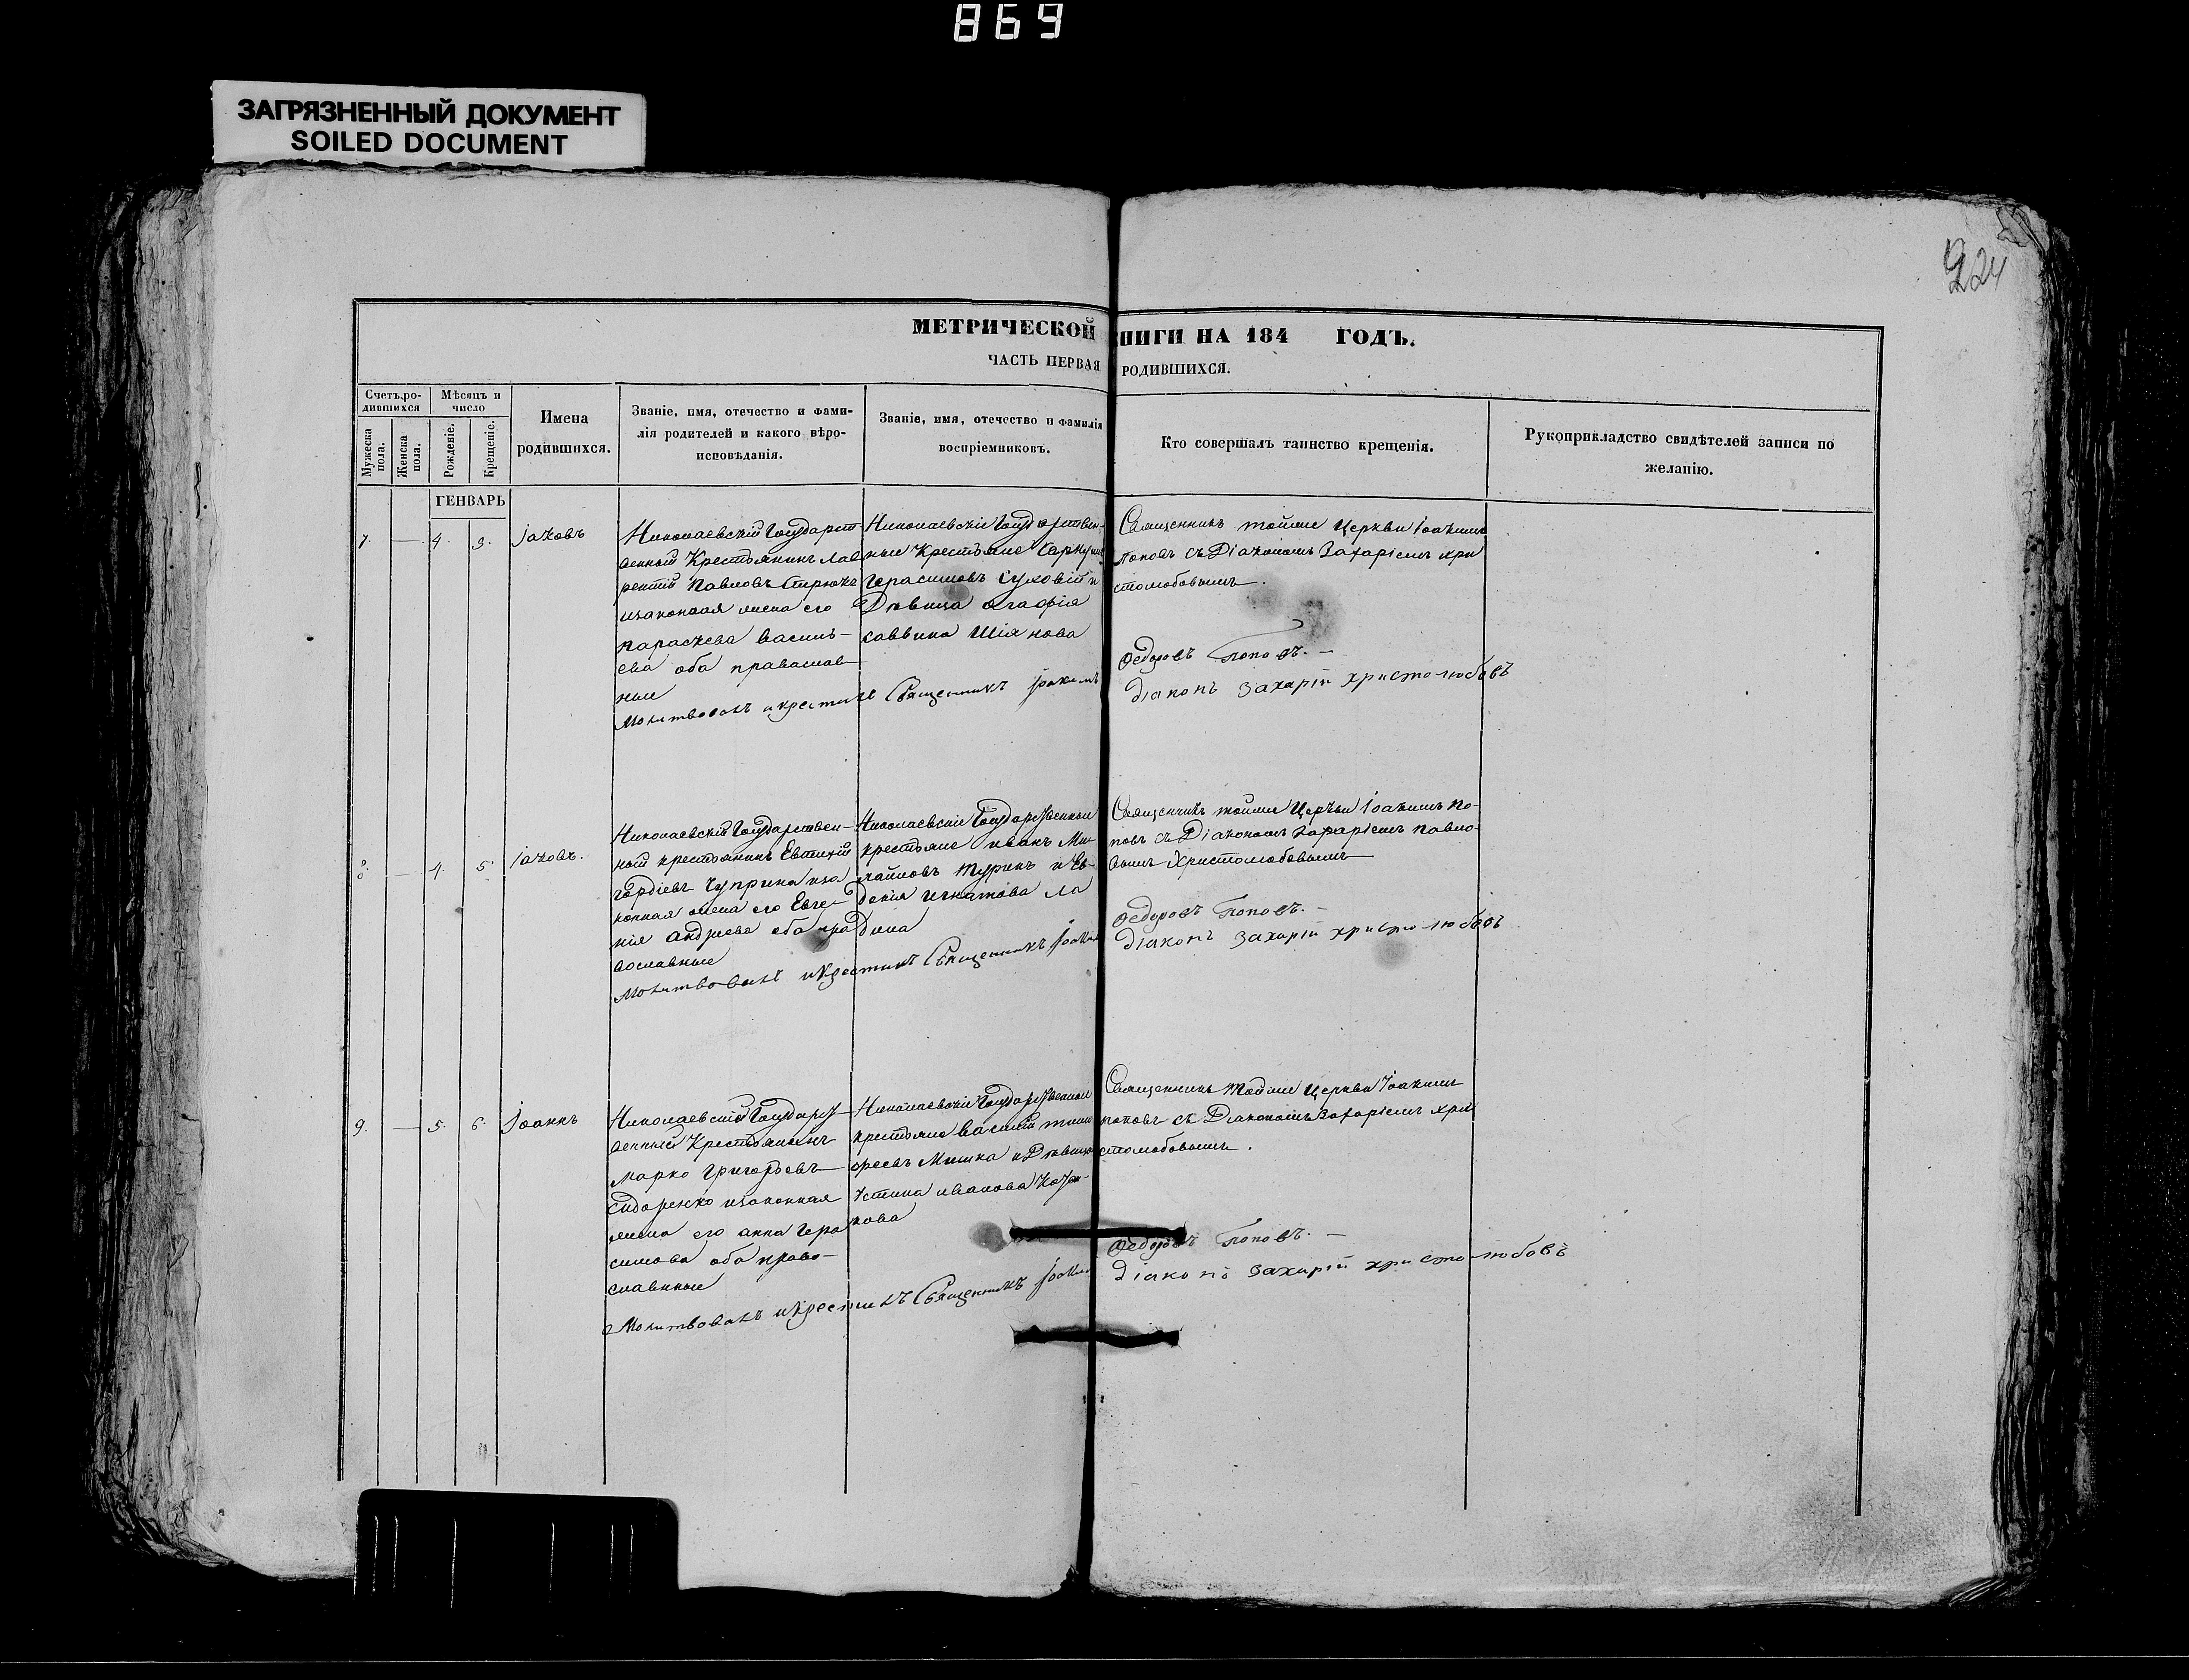 869
ЗАГРЯЗНЕННЫЙ ДОКУМЕНТ
SOILED DOCUMENT
224
МЕТРИЧЕСКОЙ КНИГИ НА 184 ГОДЪ.
ЧАСТЬ ПЕРВАЯ РОДИВШИХСЯ.
Счетъ ро-
дившихся
Мужеска пола.
Женска пола.
Мѣсяцъ и
число
Рожденіе.
Крещеніе.
Имена
родившихся.
Званіе, имя, отечество и фами-
лія родителей и какого вѣро-
исповѣданія.
Званіе, имя, отечество и фамилія
воспріемниковъ.
Кто совершалъ таинство крещенія.
Рукоприкладство свидѣтелей записи по
желанію.
ГЕНВАРЬ
7. — 4.
Іаковъ
Николаевскій Государст
венный Крестьянинъ Лав
рентій Павловъ
изаконная жена его
Параскева Василь-
ева оба православ
ные
Николаевскіе Государствен-
ные Крестьяне
Герасимовъ Суховій и
Дѣвица Агафія
Саввина Шіянова
Священникъ тойже Церкви Іоакимъ
Поповъ съ Діакономъ Захаріемъ Хри
столюбовымъ.
Молитвовалъ икрестилъ Священникъ Іоакимъ Федоровъ Поповъ. —
Діаконъ Захарій Христолюбовъ
8. — 4. 5.
Іаковъ.
Николаевскій Государствен-
ный крестьянинъ Евтихій
Гордіевъ Чуприна иза
конная жена его Евге-
нія Андреева оба пра
вославные
Николаевскіе Государственные
крестьяне Иванъ Ми-
хайловъ Туринъ и Ев-
докія Игнатова Ла
дина
Священникъ тойже Церкви Іоакимъ По-
повъ съ Діакономъ Захаріемъ Павло-
вымъ Христолюбовымъ
Молитвовалъ икрестилъ Священникъ Іоаким Федоровъ Поповъ. —
Діаконъ Захарій Христолюбовъ
9. — 5. 6.
Іоаннъ
Николаевскій Государст
венный Крестьянинъ
Марко Григорьевъ
Сидоренко изаконная
жена его Анна Гера
симова оба право-
славные
Николаевскіе Государственные
крестьяне Василій Тимо
феевъ Мишка и Дѣвица
Устина Иванова
Священникъ тойже Церкви Іоакимъ
Поповъ съ Діакономъ Захаріемъ Хри
столюбовымъ.
Молитвовалъ икрестилъ Священникъ Іоаким Федоровъ Поповъ. —
Діаконъ Захарій Христолюбовъ